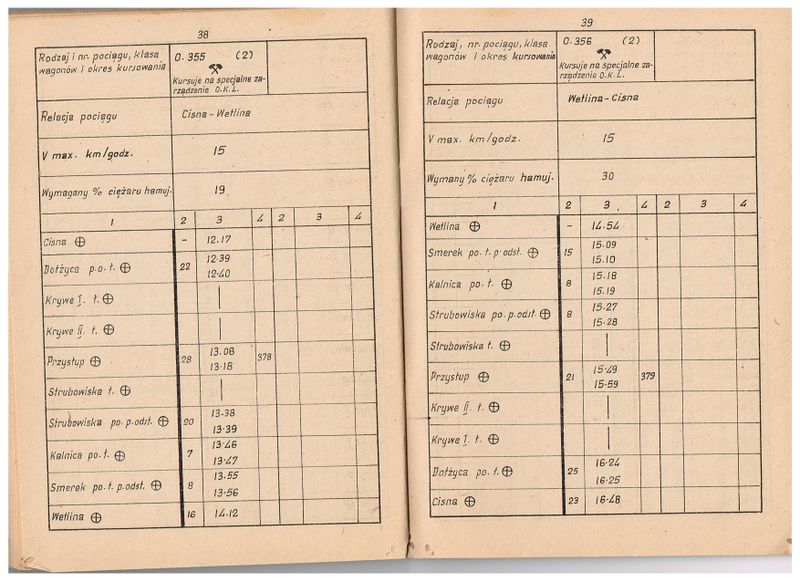 38
Rodzaj i nr. pociągu, klasa wagonów i okres kursowania
0.355 (2)
Kursuje na specjalne za-
rządzenie O.K.L.
Relacja pociągu Cisna-Wetlina
V max. km/godz. 15
Wymagany % ciężaru hamuj. 19
1 2 3 4 2 3 4
Cisna ⊕ - 12.17
Dołżyca p.o.t. ⊕ 22 12.39
12.40
Krywe I. t. ⊕ |
Krywe II. t. ⊕ |
Przysłup ⊕ 28 13.08 378
13.18
Strubowiska t. ⊕ |
Strubowiska po. p.odst. ⊕ 20 13.38
13.39
Kalnica po.t. ⊕ 7 13.46
13.47
Smerek po.t. p.odst. ⊕ 8 13.55
13.56
Wetlina ⊕ 16 14.12
39
Rodzaj, nr. pociągu, klasa
wagonów i okres kursowania
0.356 (2)
Kursuje na specjalne za-
rządzenie O.K.L.
Relacja pociągu Wetlina-Cisna
V max. km/godz. 15
Wymany % ciężaru hamuj. 30
1 2 3 4 2 3 4
Wetlina ⊕ - 14.54
Smerek po.t. p.odst. ⊕ 15 15.09
15.10
Kalnica po.t. ⊕ 8 15.18
15.19
Strubowiska po. p.odst. ⊕ 8 15.27
15.28
Strubowiska t. ⊕ |
Przysłup ⊕ 21 15.49 379
15.59
Krywe II. t. ⊕ |
Krywe I. t. ⊕ |
Dołżyca po.t. ⊕ 25 16.24
16.25
Cisna ⊕ 23 16.48